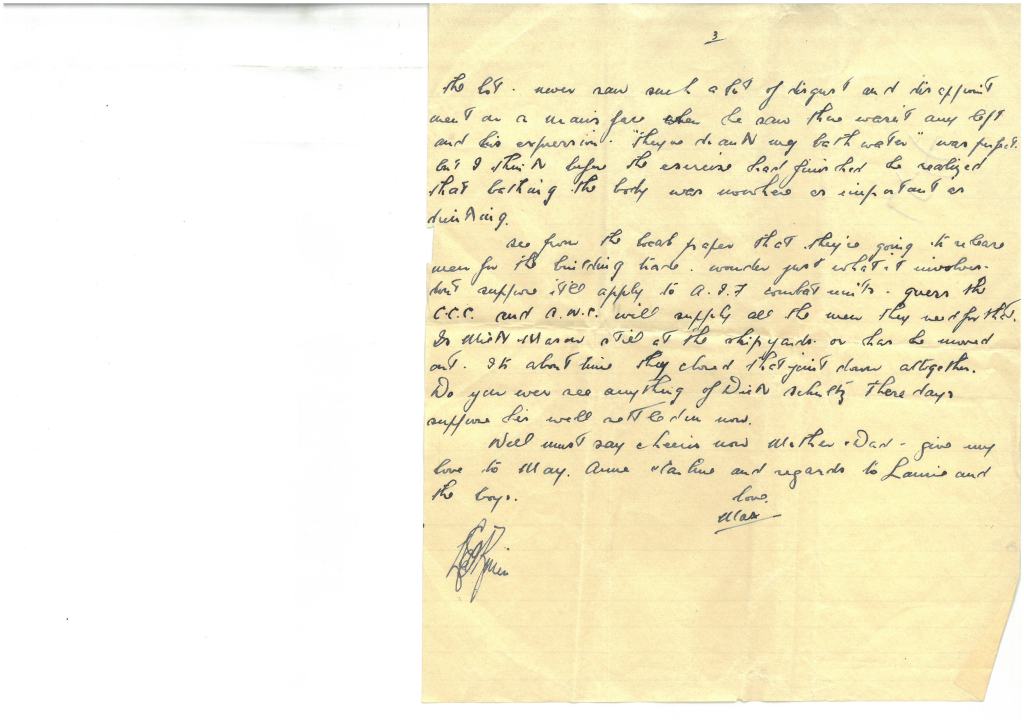 3
the lot. never saw such a lot of disgust and disappoint
ment on a mans face when he saw there wasn't any left
and his expression. "they've drank my bath water" was perfect.
but I think before the exercise had finished he realized
that bathing the body was nowhere as important as
drinking.
see from the local paper that they're going to release
men for the building trade. wonder just what it involves.
don't suppose it'll apply to A.I.F combat units. guess the
C.C.C. and A.W.C. will supply all the men they need for that.
Is Mick Mason still at the shipyards. or has he moved
out. Its about time they closed that joint down altogether.
Do you ever see anything of Dick Schultz these days
suppose his well settled in now.
Well must say cheerio now Mother & Dad - give my
love to May. Anne and regards to Laurie and
the boys.
love.
Max